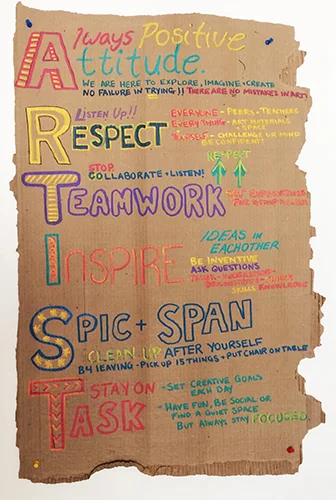 Always Positive
Attitude.
WE ARE HERE TO EXPLORE, IMAGINE + CREATE
NO FAILURE IN TRYING!! THERE ARE NO MISTAKES IN ART!
LISTEN UP!!
RESPECT
EVERYONE - PEERS + TEACHERS
EVERYTHING - ART MATERIALS
+ SPACE
YOURSELF - CHALLENGE UR MIND
BE CONFIDENT!
RESPECT
STOP
COLLABORATE + LISTEN!
TEAMWORK
INSPIRE
IDEAS IN
EACHOTHER
BE INVENTIVE
ASK QUESTIONS
SKILLS KNOWLEDGE
SPIC + SPAN
CLEAN UP AFTER YOURSELF
B4 LEAVING - PICK UP 15 THINGS + PUT CHAIR ON TABLE
TASK
STAY ON
- SET CREATIVE GOALS
EACH DAY
- HAVE FUN, BE SOCIAL OR
FIND A QUIET SPACE
BUT ALWAYS STAY FOCUSED.